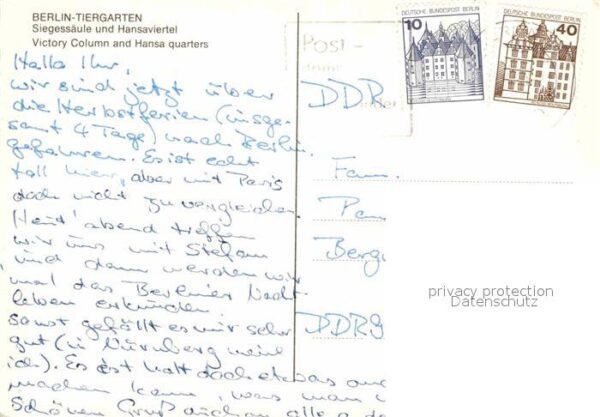 BERLIN-TIERGARTEN
Siegessäule und Hansaviertel
Victory Column and Hansa quarters
Hallo Ihr,
wir sind jetzt über
die Herbstferien (insge-
samt 4 Tage) nach Berlin
gefahren. Es ist echt
toll hier, aber mit Paris
doch nicht zu vergleichen.
Heut' abend treffen
wir uns mit Stefan
und dann werden wir
mal das Berliner Nacht-
leben erkunden.
Sonst gefällt es mir sehr
gut (in Nürnberg mein
ich). Es ist halt doch etwas
machen kann, was man
Schönen Gruß auch an alle
Post-
DDR
Fam.
Berg
DDR
10
DEUTSCHE BUNDESPOST BERLIN
40
DEUTSCHE BUNDESPOST BERLIN
privacy protection
Datenschutz